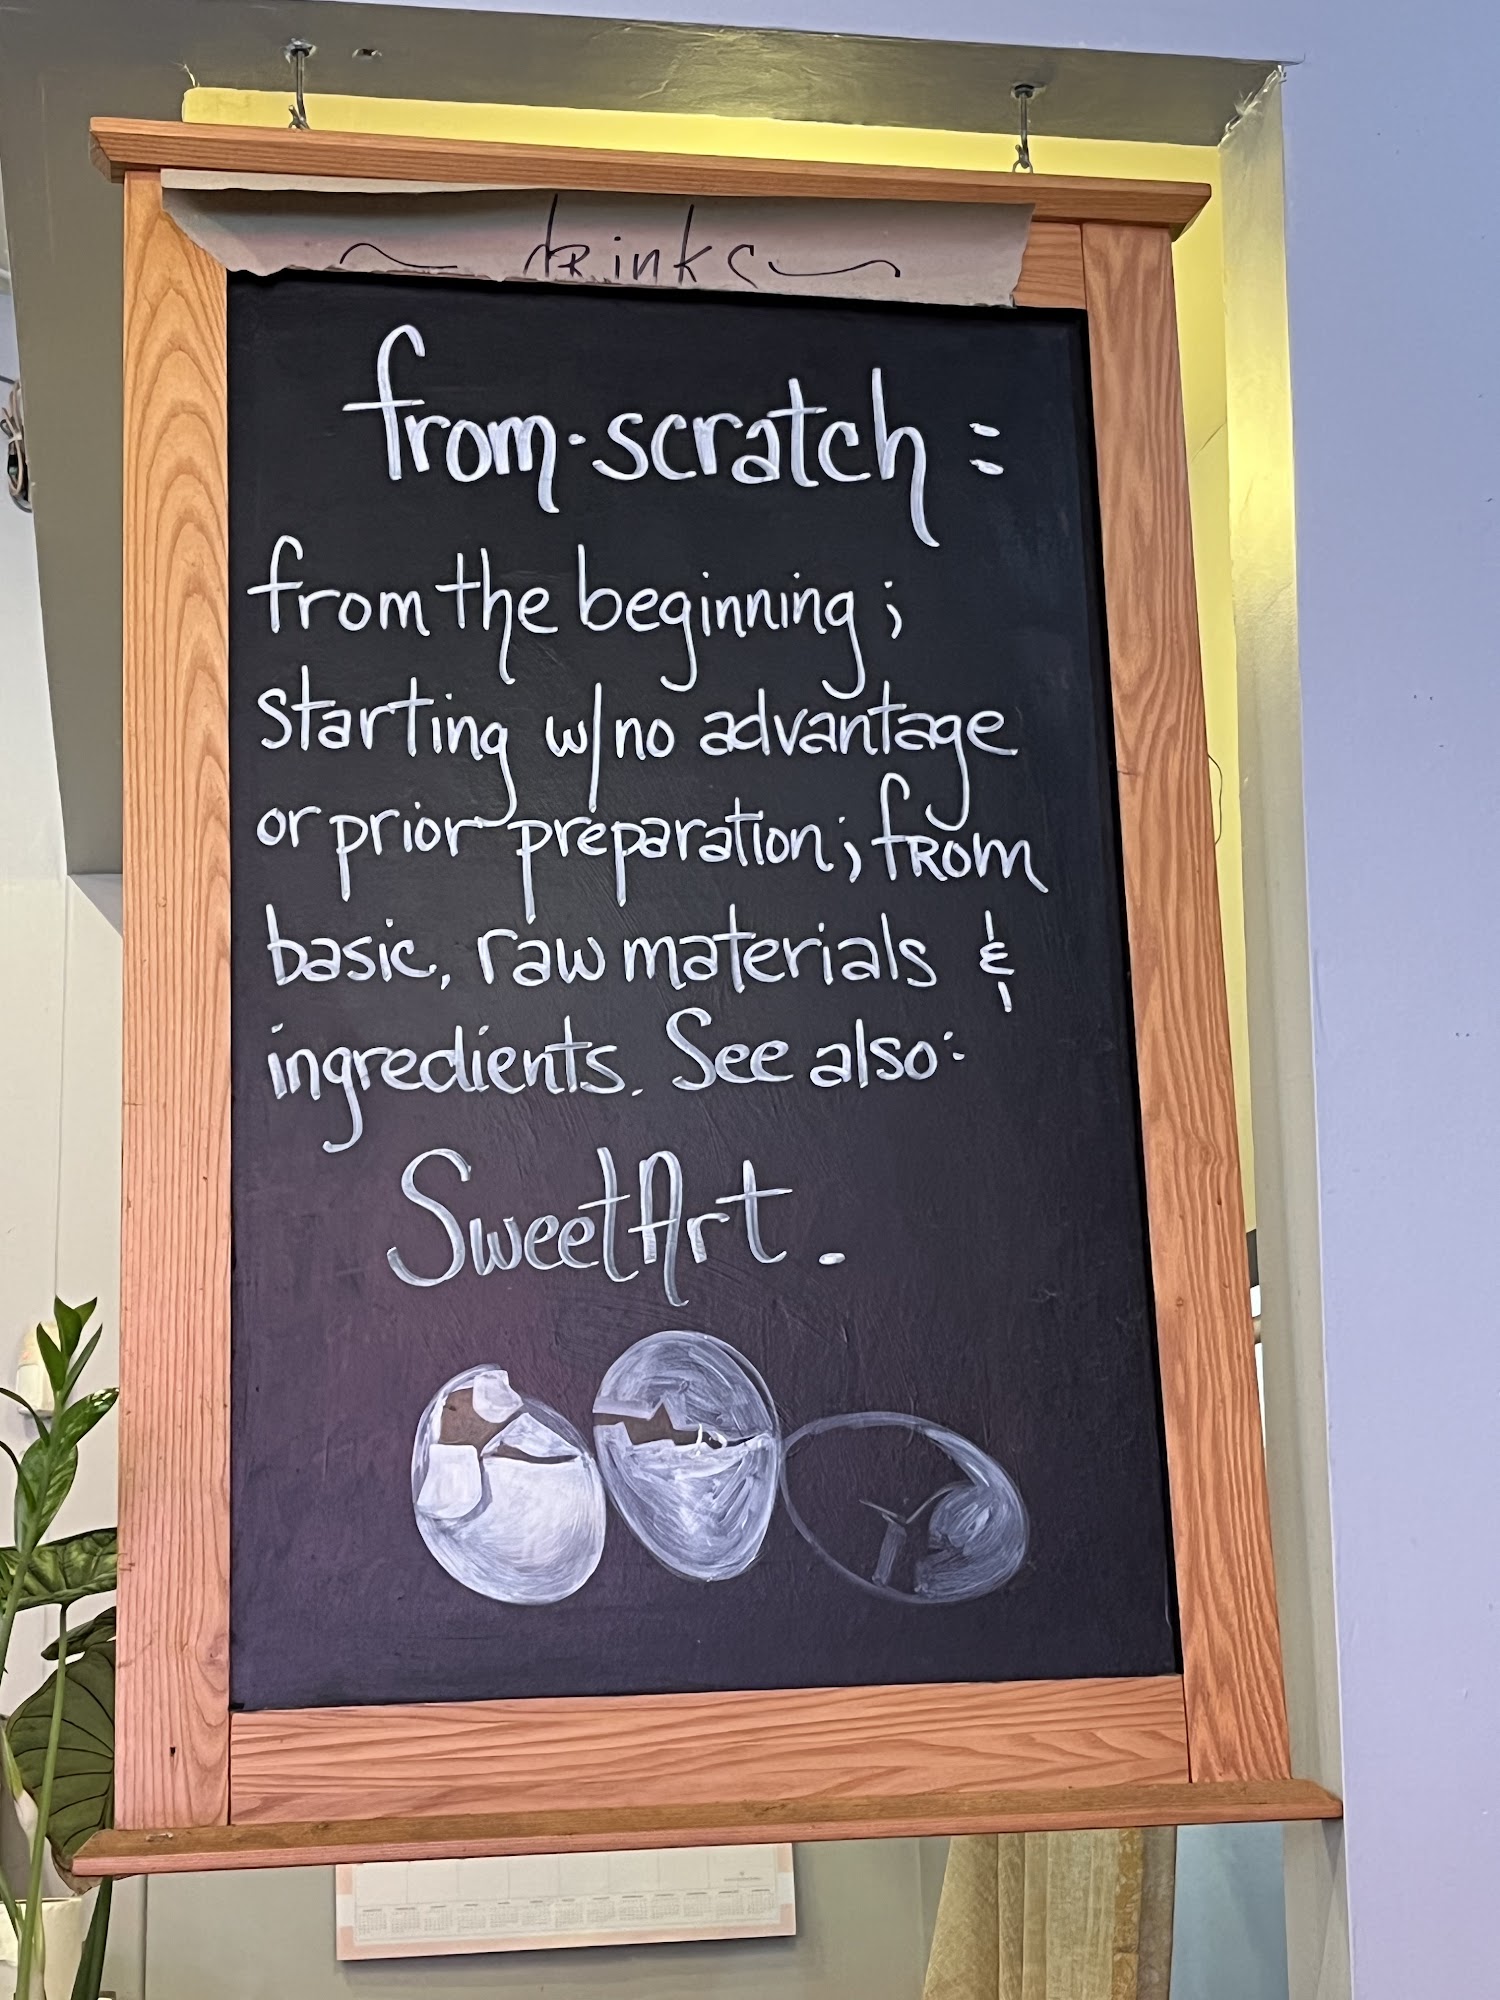 ~ drinks ~
from-scratch =
from the beginning;
starting w/no advantage
or prior preparation; from
basic, raw materials &
ingredients. See also:
SweetArt.